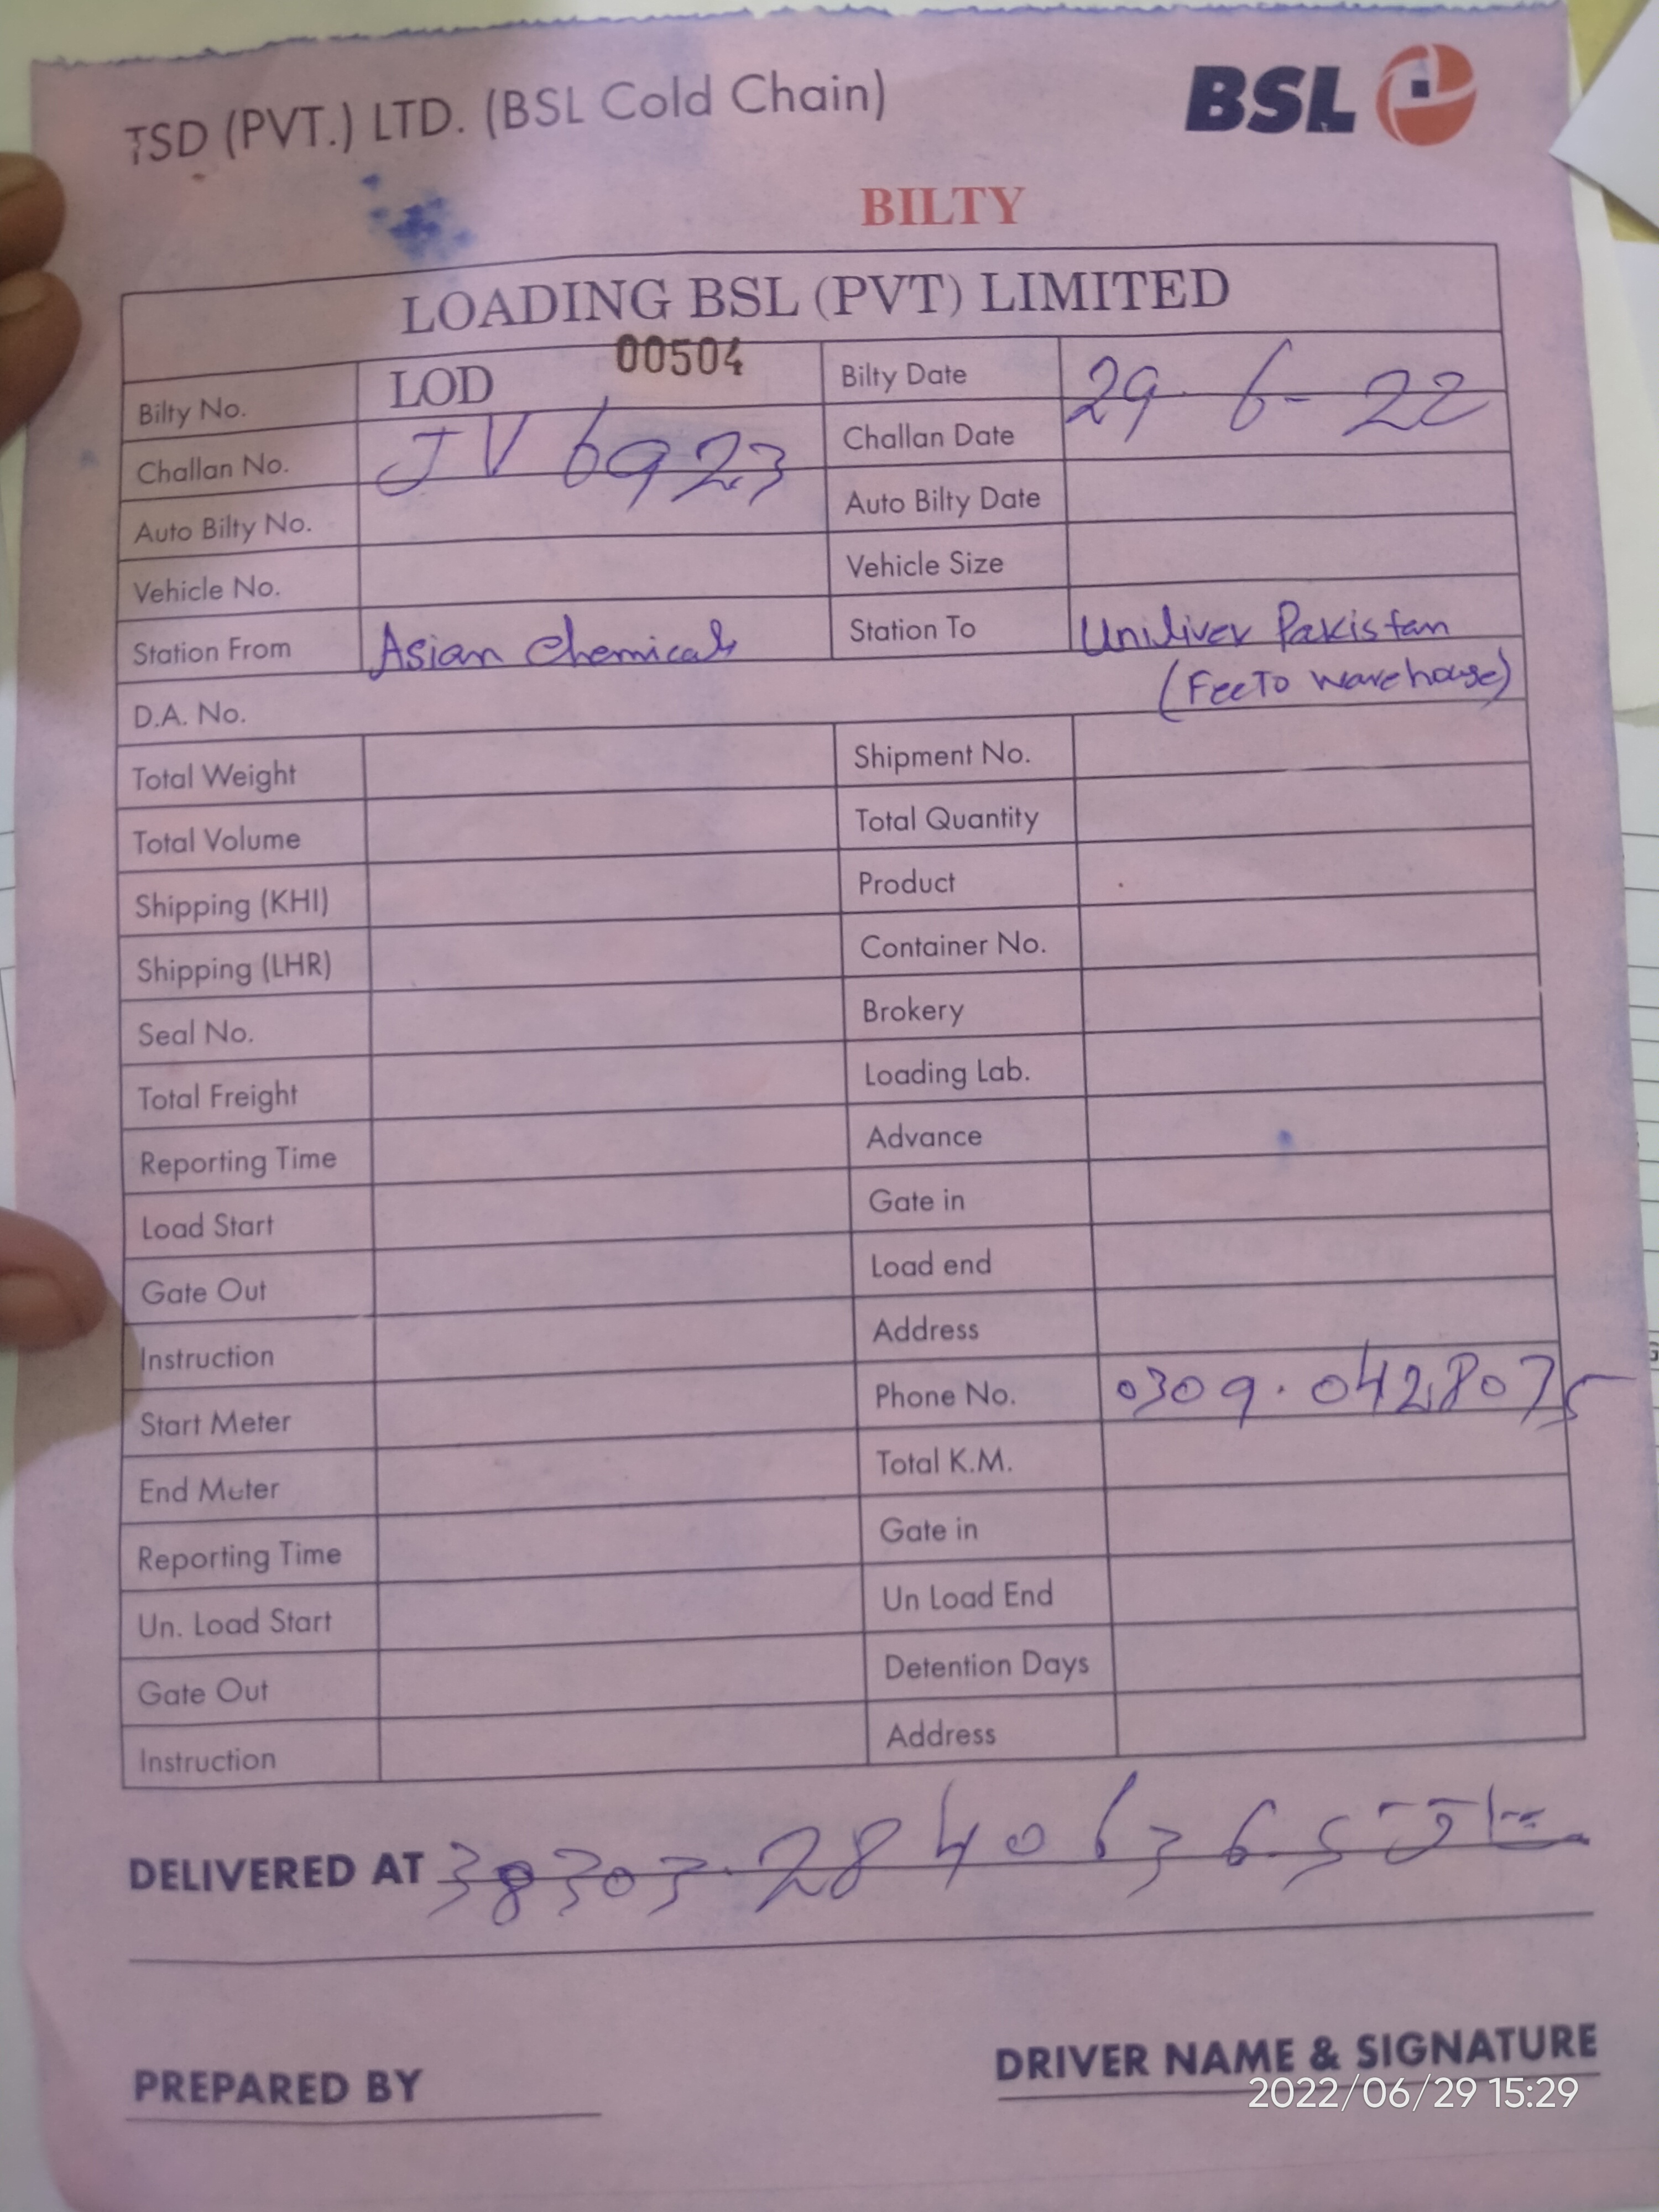 TSD (PVT.) LTD. (BSL Cold Chain)
BSL
BILTY
LOADING BSL (PVT) LIMITED
Bilty No. LOD 00504 Bilty Date 29-6-22
Challan No. JV 6923 Challan Date
Auto Bilty No. Auto Bilty Date
Vehicle No. Vehicle Size
Station From Asian Chemicals Station To Uniliver Pakistan
D.A. No. (FeeTo warehouse)
Total Weight Shipment No.
Total Volume Total Quantity
Shipping (KHI) Product
Shipping (LHR) Container No.
Seal No. Brokery
Total Freight Loading Lab.
Reporting Time Advance
Load Start Gate in
Gate Out Load end
Instruction Address
Start Meter Phone No. 0309.0428075
End Meter Total K.M.
Reporting Time Gate in
Un. Load Start Un Load End
Gate Out Detention Days
Instruction Address
DELIVERED AT 38303.2840636.5
PREPARED BY
DRIVER NAME & SIGNATURE
2022/06/29 15:29